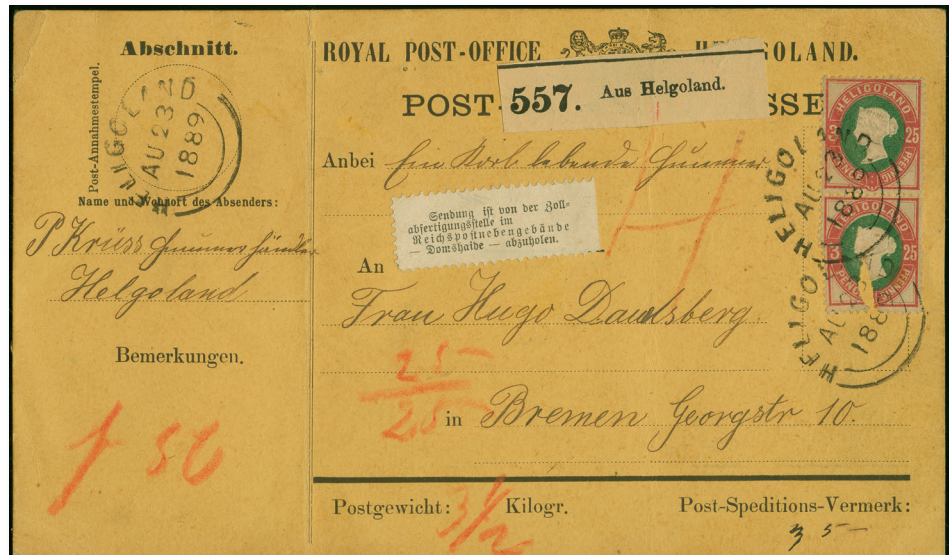 Abschnitt.
Post-Annahmestempel.
HELIGOLAND
AU 23
1889
Name und Wohnort des Absenders:
P Krüss Hummerhändler
Helgoland
Bemerkungen.
1 50
ROYAL POST-OFFICE HELIGOLAND.
POST-
557. Aus Helgoland.
Anbei Ein Korb lebende Hummer
Sendung ist von der Zoll-
abfertigungsstelle im
Reichspostnebengebäude
— Domshaide — abzuholen.
An
Frau Hugo
25
25
in Bremen Georgstr 10.
Postgewicht: 3 1/2 Kilogr.
Post-Speditions-Vermerk:
35
HELIGOLAND
3 25
PENCE PFENNIG
HELIGOLAND
3 25
PENCE PFENNIG
HELIGOLAND
AU 23
1889
HELIGOLAND
AU 23
1889